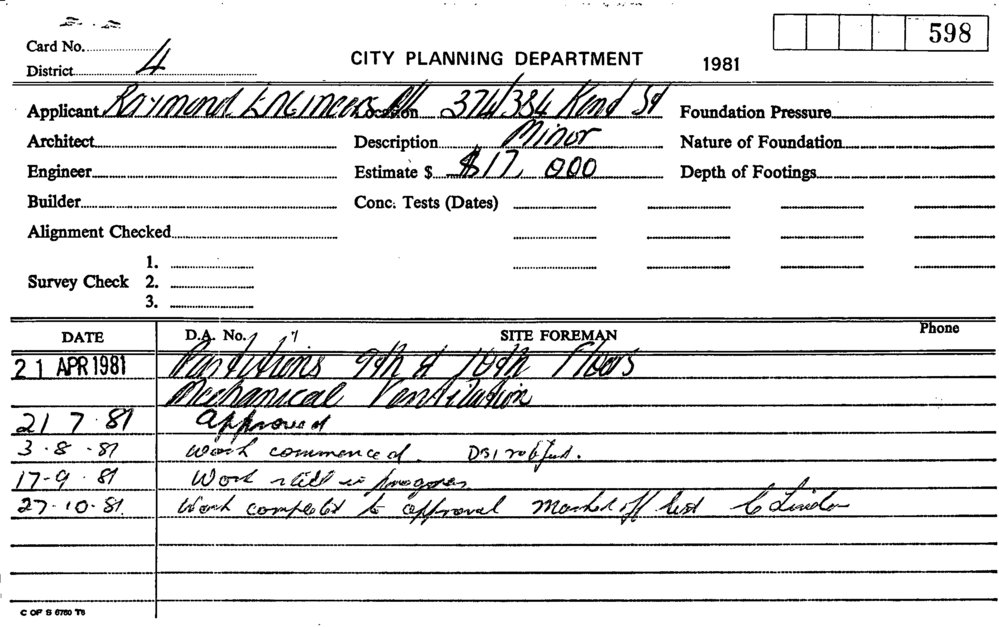 598
Card No.
District 4
CITY PLANNING DEPARTMENT 1981
Applicant Raymond Engineers P/L Location 374/384 Kent St Foundation Pressure
Architect Description Minor Nature of Foundation
Engineer Estimate $ $17,000 Depth of Footings
Builder Conc. Tests (Dates)
Alignment Checked
1.
Survey Check 2.
3.
DATE D.A. No. SITE FOREMAN Phone
21 APR 1981 Partitions 9th & 10th Floors
Mechanical Ventilation
21 7 81 Approved
3-8-81 Work commenced.
17-9-81 Work still in progress
27-10-81 Work completed to approval Marked off list
C OF S 6760 T6